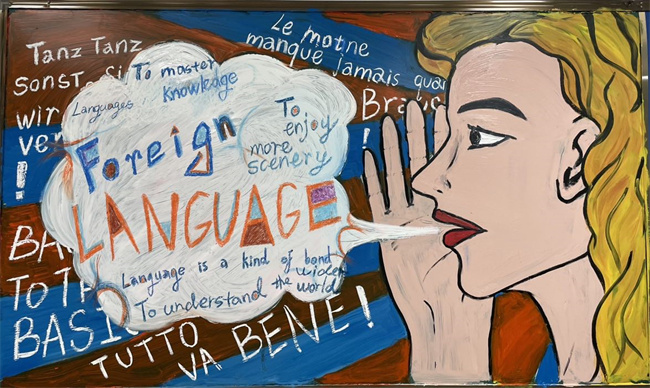 Tanz Tanz
sonst si
wir
ver
!
Le motne
manque jamais qua
!
To master
knowledge
Languages
Foreign
To
enjoy
more
scenery
LANGUAGE
Language is a kind of bond
wider
To understand the world
BA
TO TA
BASI
TUTTO
VA BENE!